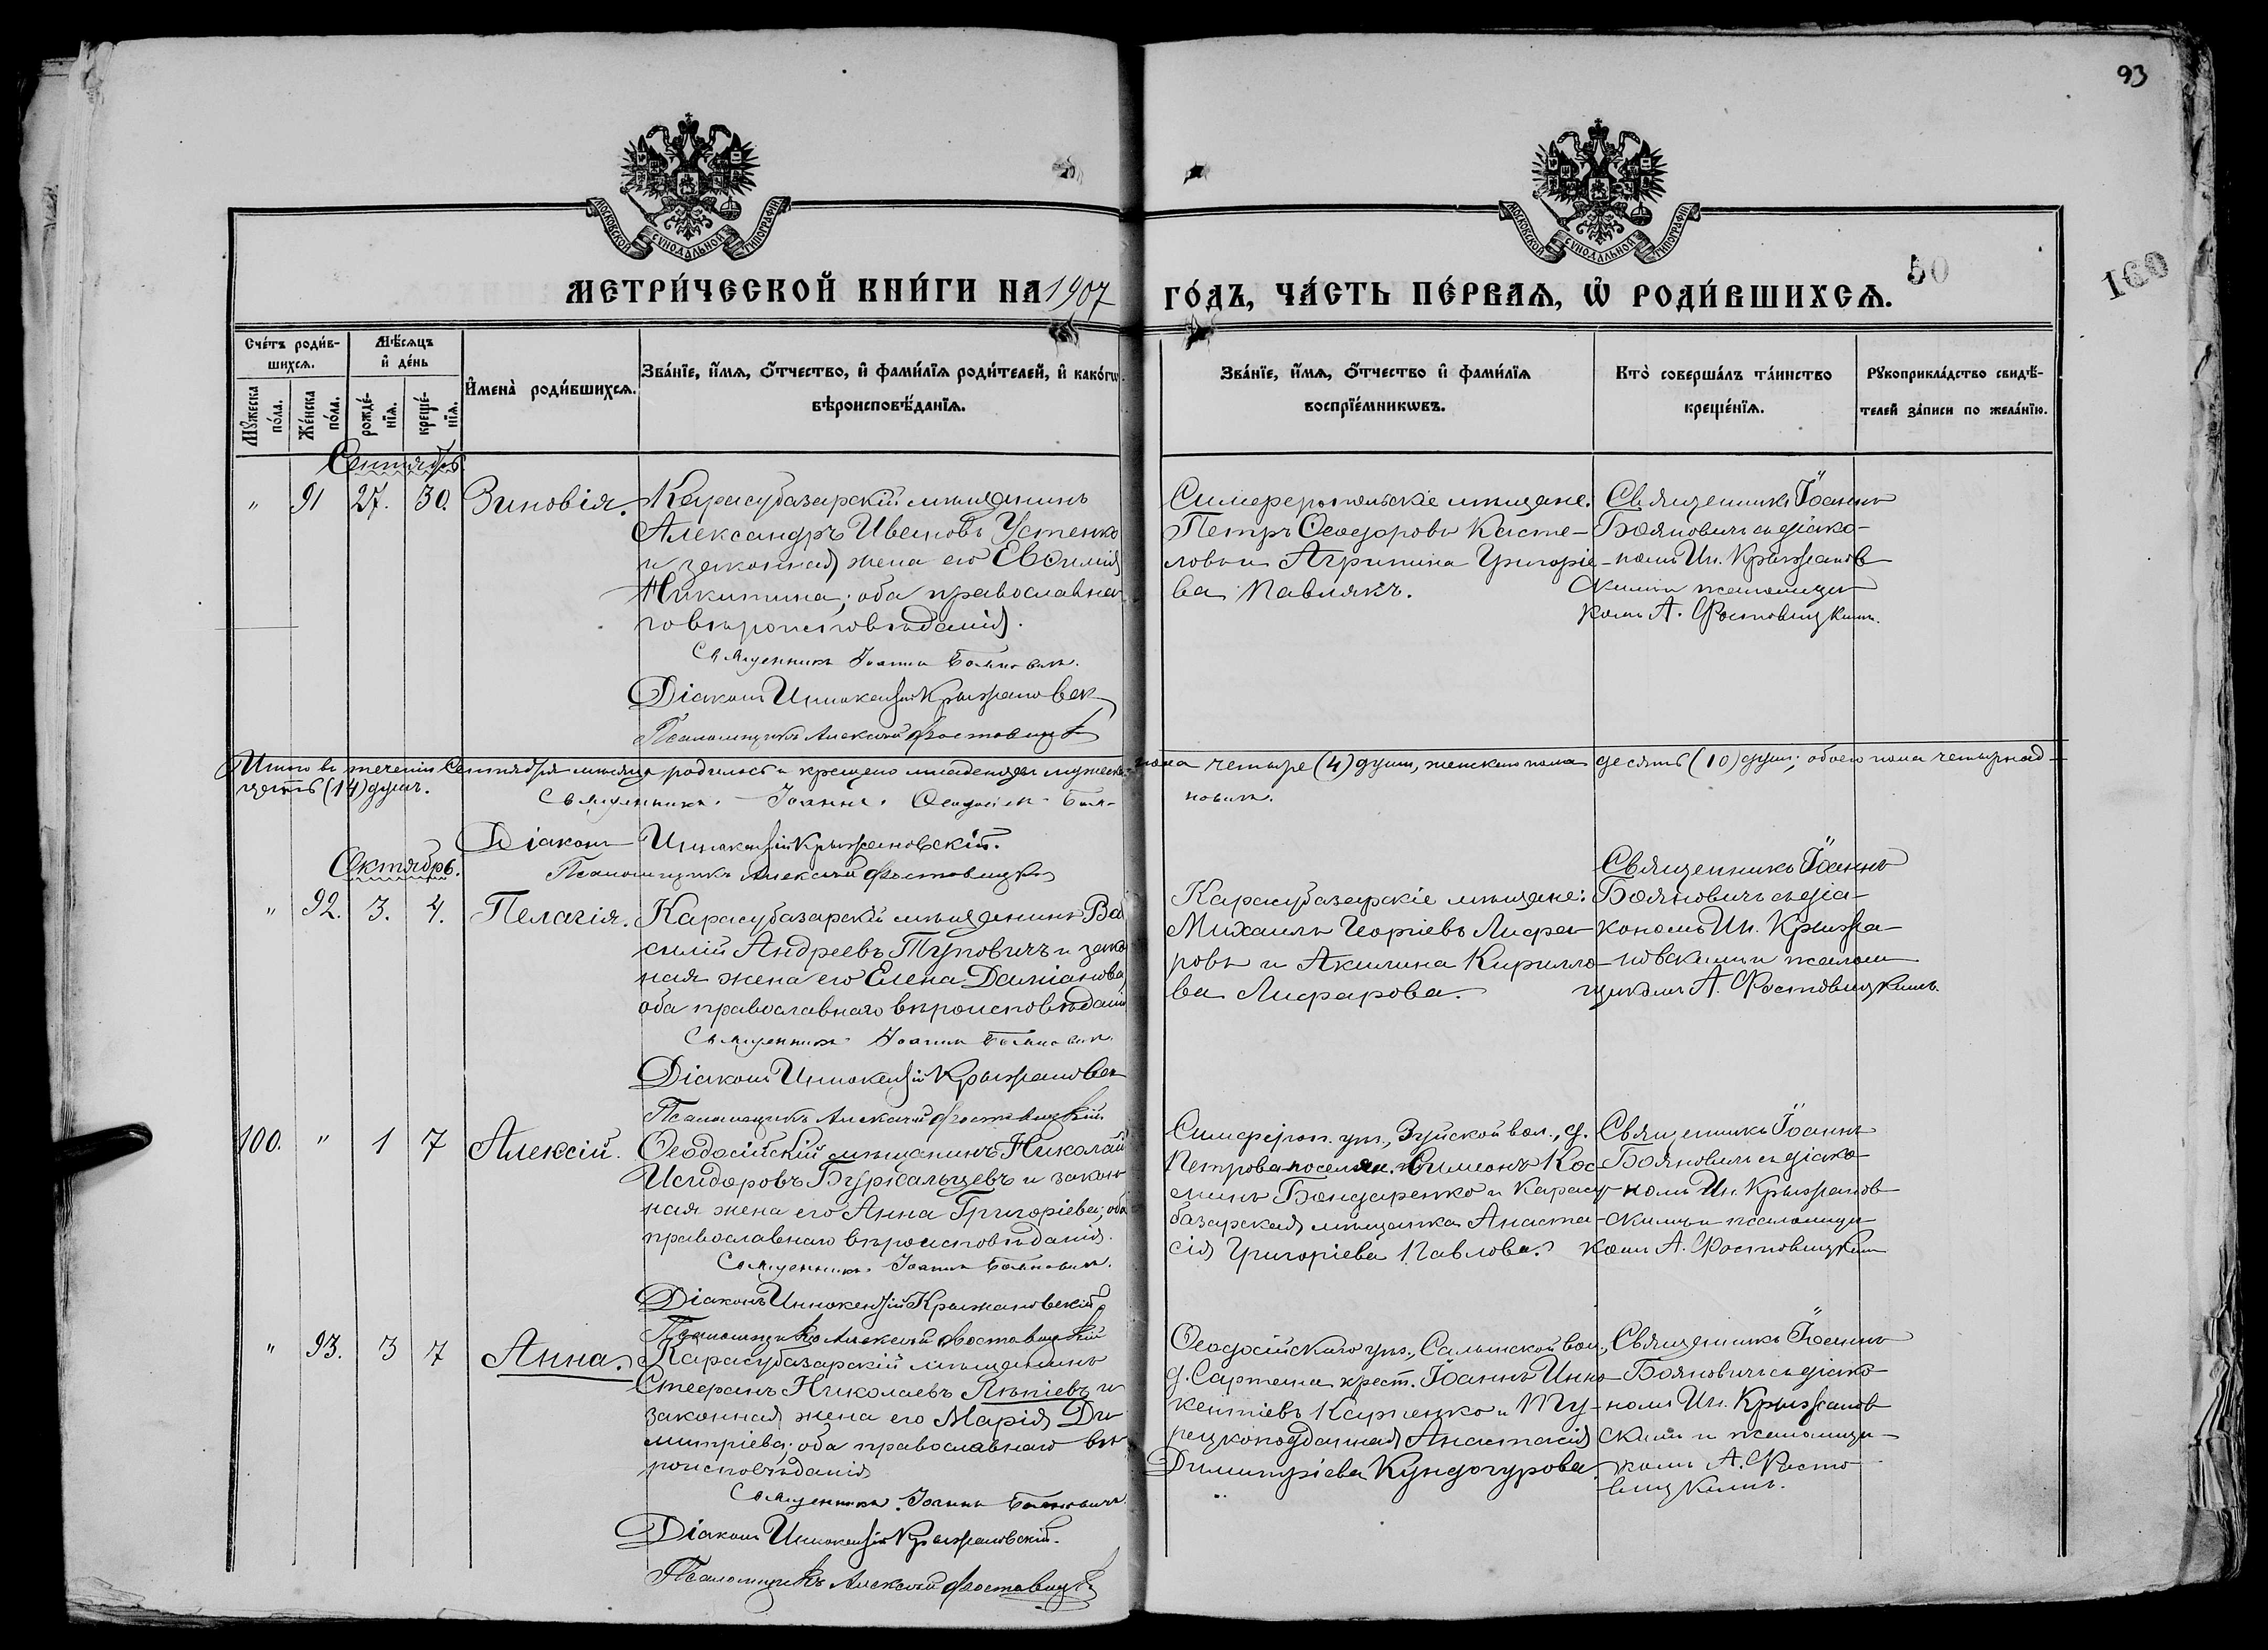 93
МОСКОВСКОЙ СѴНОДАЛЬНОЙ ТИПОГРАФІИ
МОСКОВСКОЙ СѴНОДАЛЬНОЙ ТИПОГРАФІИ
МЕТРИ́ЧЕСКОЙ КНИ́ГИ НА 1907
ГО́ДЪ, ЧА́СТЬ ПЕ́РВАѦ, Ѡ҆ РОДИ́ВШИХСѦ.
50
160
Сче́тъ роди́в-
шихсѧ.
Мꙋжеска по́ла.
Же́нска по́ла.
Мѣ́сѧцъ
и҆ де́нь
рожде́-
нїѧ.
креще́-
нїѧ.
И҆мена̀ роди́вшихсѧ.
Зва́нїе, и҆́мѧ, ѻ҆́тчество, и҆ фами́лїѧ роди́телей, и҆ како́гѡ
вѣроисповѣ́данїѧ.
Зва́нїе, и҆́мѧ, ѻ҆́тчество и҆ фами́лїѧ
воспрїе́мникѡвъ.
Кто̀ соверша́лъ та́инство
креще́нїѧ.
Рꙋкоприкла́дство свидѣ́-
телей за́писи по жела́нїю.
Сентябрь
" 91 27. 30. Зиновія.
Карасубазарскій мѣщанинъ
Александръ Ивановъ Устенко
и законная жена его Евѳимія
Никитина; оба православна
го вѣроисповѣданія.
Священникъ Іоаннъ Бояновичъ.
Діаконъ Иннокентій Крыжановск
Псаломщикъ Алексѣй Фостовиц
Симферопольскіе мѣщане:
Петръ Ѳеодоровъ Касте-
ловъ и Агрипина Григоріе-
ва Павлякъ.
Священникъ Іоаннъ
Бояновичъ съ діако-
номъ Ин. Крыжанов
скимъ и псаломщи
комъ А. Фостовицкимъ.
Итого въ теченіи Сентября мѣсяца родилось и крещено младенцевъ мужеск. пола четыре (4) души, женскаго пола десять (10) душъ; обоего пола четырнад-
цать (14) душъ.
Священникъ Іоаннъ Ѳеодосіев. Боя-
новичъ.
Діаконъ Иннокентій Крыжановскій.
Псаломщикъ Алексѣй Фостовицкі
Октябрь.
" 92. 3. 4. Пелагія.
Карасубазарскій мѣщанинъ Ва
силій Андреевъ Туповичъ и зако
ная жена его Елена Даміанова
оба православнаго вѣроисповѣданія
Священникъ Іоаннъ Бояновичъ.
Діаконъ Иннокентій Крыжановск
Псаломщикъ Алексѣй Фостовицкій.
Карасубазарскіе мѣщане:
Михаилъ Георгіевъ Лифа-
ровъ и Акилина Кирилло-
ва Лифарова.
Священникъ Іоаннъ
Бояновичъ съ діа-
кономъ Ин. Крыжа-
новскимъ и псалом
щикомъ А. Фостовицкимъ.
100. " 1 7 Алексій.
Ѳеодосійскій мѣщанинъ Николай
Исидоровъ Буркальцевъ и закон
ная жена его Анна Григоріева; оба
православнаго вѣроисповѣданія.
Священникъ Іоаннъ Бояновичъ.
Діаконъ Иннокентій Крыжановскій.
Псаломщикъ Алексѣй Фостовицкій
Симфероп. уѣз., Зуйской вол., д.
Петрова поселян. Симеонъ Кос-
минъ Бондаренко и Карасу-
базарская мѣщанка Анаста-
сія Григоріева Павлова.
Священникъ Іоаннъ
Бояновичъ съ діако-
номъ Ин. Крыжанов
скимъ и псаломщи
комъ А. Фостовицким
" 93. 3 7 Анна.
Карасубазарскій мѣщанинъ
Стефанъ Николаевъ Япъіевъ и
законная жена его Марія Ди
митріева; оба православнаго вѣ
роисповѣданія
Священникъ Іоаннъ Бояновичъ.
Діаконъ Иннокентій Крыжановскій.
Псаломщикъ Алексѣй Фостовицк
Ѳеодосійскаго уѣз., Салынской вол.,
д. Сартана крест. Іоаннъ Инно-
кентіевъ Карпенко и Ту-
рецкоподданная Анастасія
Димитріева Кундогурова.
Священникъ Іоаннъ
Бояновичъ съ діако
номъ Ин. Крыжанов
скимъ и псаломщи-
комъ А. Фосто-
вицкимъ.